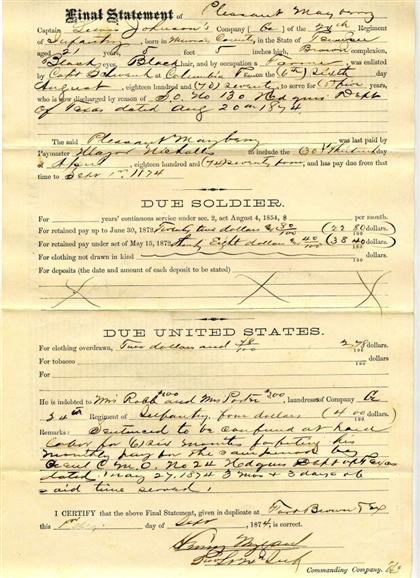 Final Statement of Pleasant Mayberry
Captain Lewis Johnson's Company (G) of the 24th Regiment
of Infantry, born in County in the State of Tennessee
aged 21 years, 5 feet 5 inches high, Brown complexion,
Black eyes, Black hair, and by occupation a Farmer, was enlisted
by Capt at Columbia Tenn on the (6th) Sixth day
August, eighteen hundred and (72) seventy to serve for years,
who is now discharged by reason of S.O. No 130 Hdqrs Dept
of Texas dated Aug 20th 1874
The said Pleasant Mayberry was last paid by
Paymaster Major Nicholls to include the (30) Thirtieth day
of April, eighteen hundred and (74) seventy four, and has pay due from that
time to Sept 1st 1874
DUE SOLDIER.
For years' continuous service under sec. 2, act August 4, 1854, $ per month.
For retained pay up to June 30, 1872, Twenty two dollars & 80/100 (22 80/100 dollars.
For retained pay under act of May 15, 1872, Thirty Eight dollars & 40/100 (38 40/100 dollars.
For clothing not drawn in kind dollars.
For deposits (the date and amount of each deposit to be stated)
DUE UNITED STATES.
For clothing overdrawn, Two dollars and 78/100 2 78/100 dollars.
For tobacco dollars
He is indebted to Mrs Robb $2.00 and Mrs Porter $2.00, laundress of Company G
24th Regiment of Infantry, four dollars (4 00/100 dollars.
Remarks: Sentenced to be confined at hard
labor for 6) six months forfeiting his
monthly pay for the same period by
Genl C.M.O. No 24 Hdqrs Dept of Texas
dated May 27, 1874 3 mos & 3 days of
said time served
I CERTIFY that the above Final Statement, given in duplicate at Fort Brown Tex
this 1st day of Sept 1874, is correct.
Commanding Company. G